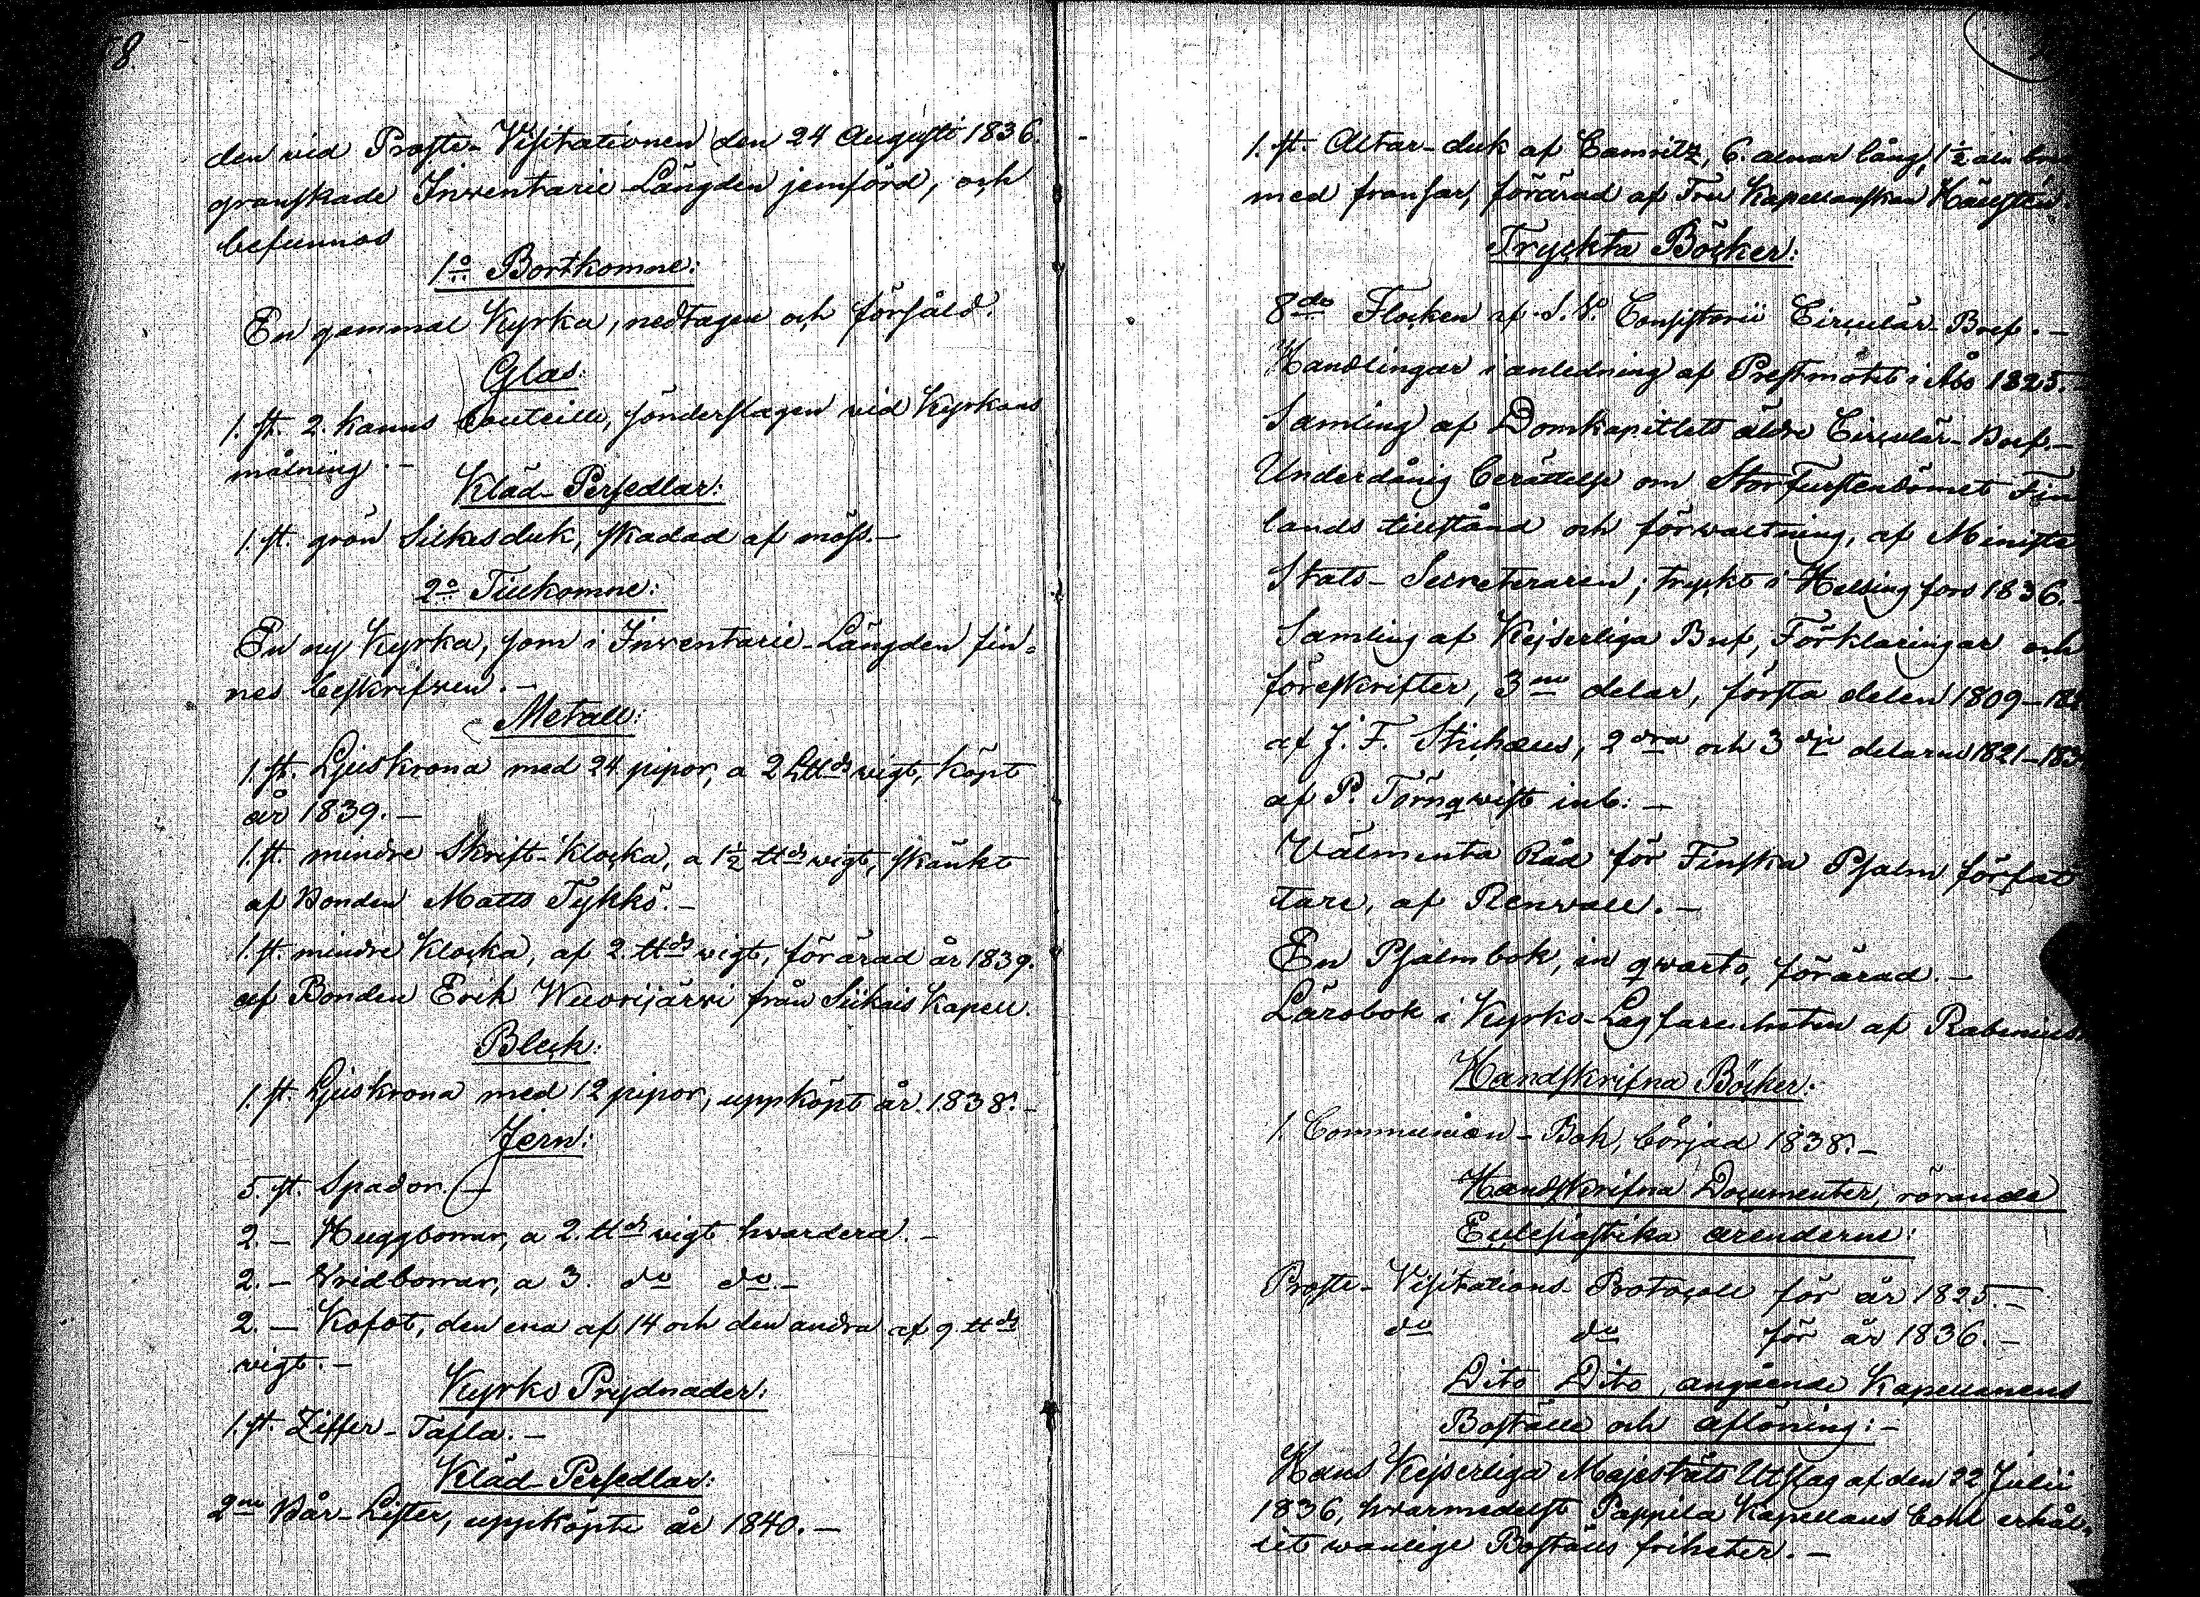 8.
den vid Prosts-Visitationen den 24 Augusti 1836.
granskade Inventarie-Längden jemförd, och
befunnos
1o Bortkomne:
En gammal Kyrka, nedtagen och försåld.
Glas:
1. st. 2. kanns bouteille, sönderslagen vid Kyrkans
målning. -
Kläd-Persedlar:
1. st. grön Silkesduk, skadad af möss. -
2o Tillkomne:
En ny Kyrka, som i Inventarie-Längden fin=
nes beskrifven. -
Metall:
1. st. Ljuskrona med 24 pipor, a 2 Lttds vigt, köpt
år 1839. -
1. st. mindre Skrift-Klocka, a 1 1/2 ttds vigt, skänkt
af Bonden Matts Tykkö. -
1. st. mindre Klocka, af 2. ttds vigt, förärad år 1839.
af Bonden Erik Wuorijärwi från Siikais Kapell.
Bleck:
1. st. Ljuskrona med 12 pipor, uppköpt år 1838. -
Jern:
5. st. Spador. -
2. - Huggborrar, a 2. ttds vigt hvardera. -
2. - Vridborrar, a 3. do do. -
2. - Kofot, den ena af 14 och den andra af 9 ttds
vigt. -
Kyrko Prydnader:
1. st. Ziffer-Tafla. -
Kläd-Persedlar:
2ne Bår-Lister, uppköpte år 1840. -
1. st. Altar-duk af Camritz, 6. alnar lång, 1 1/2 aln
med fransar, förärad af Fru Kapellanskan
Tryckta Böcker:
8de Flocken af S. V. Consistorii Circulär-Bref. -
Handlingar i anledning af Prestmötet i Åbo 1825. -
Samling af Domkapitlets äldre Circulär-Bref. -
Underdånig berättelse om StorFurstendömet Fin
lands tillstånd och förvaltning, af Ministe
Stats-Secreteraren; tryckt i Helsingfors 1836. -
Samling af Kejserliga Bref, Förklaringar och
föreskrifter, 3ne delar, första delen 1809-
af J. F. Stichæus, 2dra och 3dje delarne 1821-183
af P. Törnqwist inb: -
Välmenta Råd för Finska Psalm förfat
tare, af Renvall. -
En Psalmbok, in qwarto, förärad. -
Lärobok i Kyrko-Lagfarenheten af Rabenius
Handskrifna Böcker:
1. Communion-Bok, börjad 1838. -
Handskrifna Documenter, rörande
Ecclesiastika ärenderne:
Prosts-Visitations-Protocoll för år 1825. -
do do för år 1836. -
Dito Dito, angående Kapellanens
Boställe och aflöning: -
Hans Kejserliga Majestäts Utslag af den 22 Julii
1836, hvarmedelst Pappila Kapellans bohl erhål=
lit wanlige Boställs friheter. -